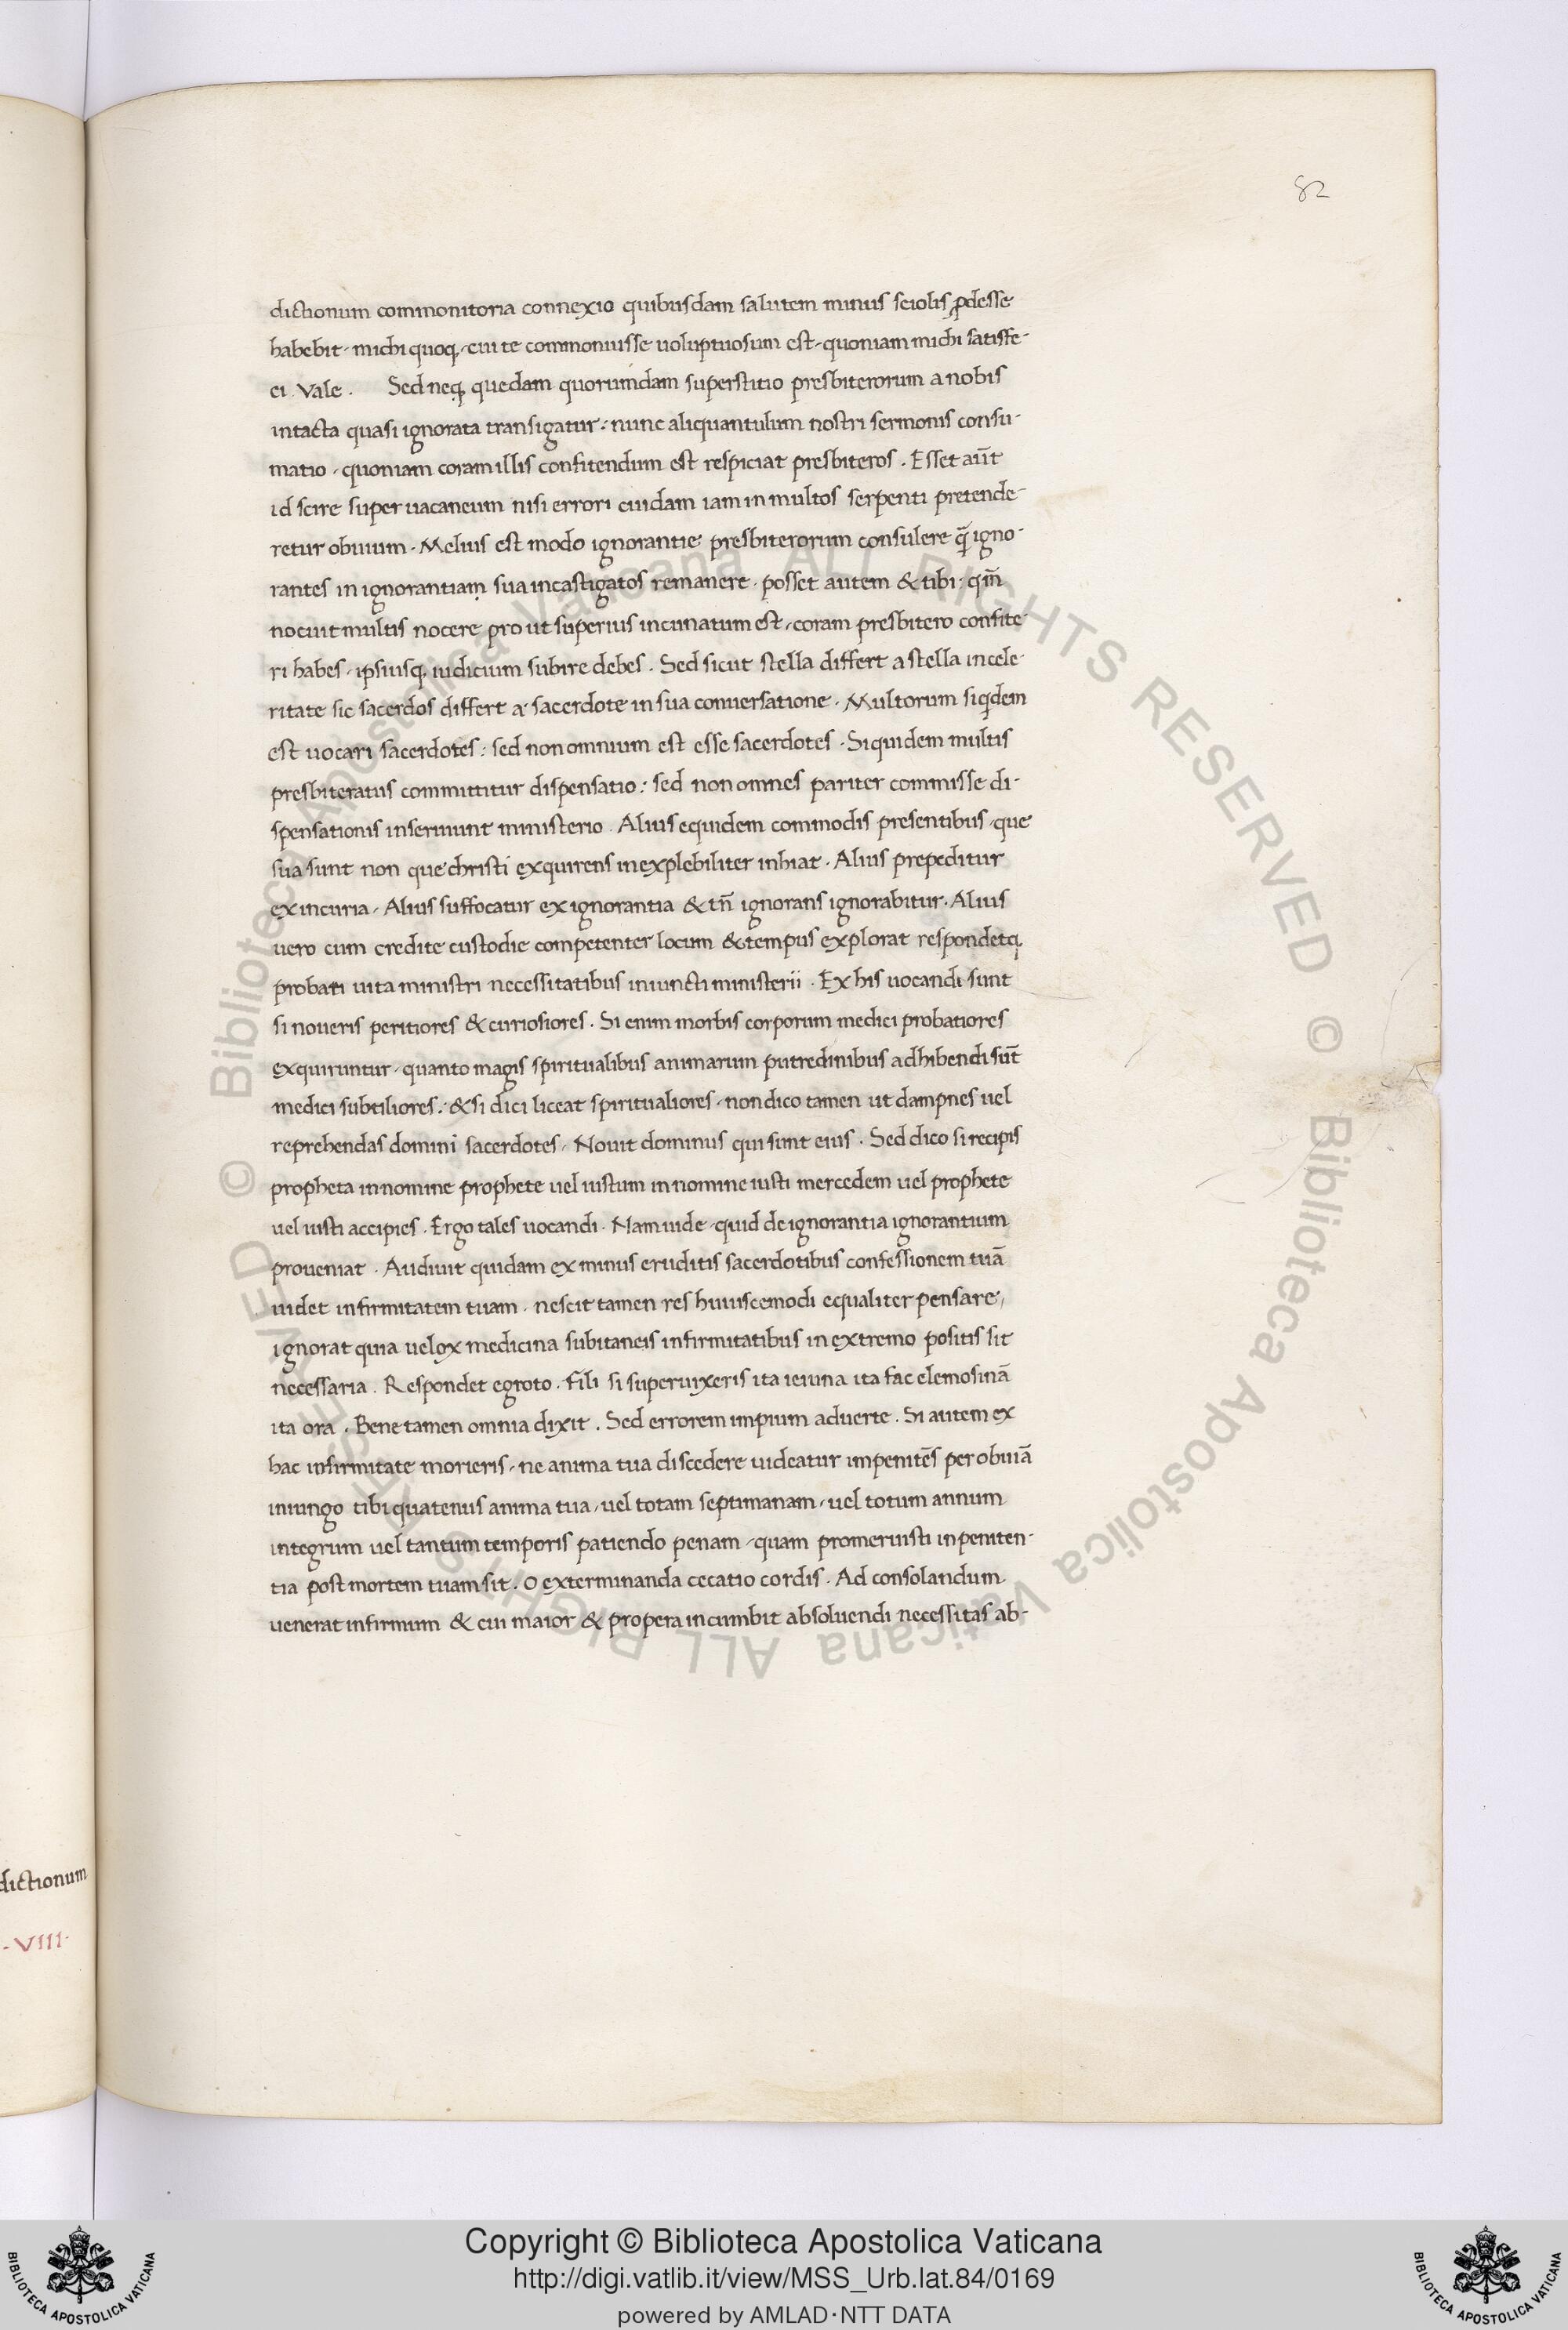 82
dictionum commonitoria connexio quibusdam salutem minus sciolis ꝓdesse
habebit · michi quoq; · cui te commonuisse uoluptuosum est · quoniam michi satisfe-
ci . Vale . Sed neq; quedam quorumdam superstitio presbiterorum a nobis
intacta quasi ignorata transigatur : nunc aliquantulum nostri sermonis consu-
matio · quoniam coram illis confitendum est respiciat presbiteros . Esset aūt
id scire superuacaneum nisi errori cuidam iam in multos serpenti pretende-
retur obuium . Melius est modo ignorantie presbiterorum consulere q̄ igno-
rantes in ignorantiaṃ sua incastigatos remanere · posset autem & tibi · qm̄
nocuit multis nocere pro ut superius incunatum est · coram presbitero confite-
ri habes · ipsiusq; iudicium subire debes . Sed sicut stella differt a stella in cele-
ritate sic sacerdos differt a sacerdote in sua conuersatione . Multorum siqdem
est uocari sacerdotes : sed non omnium est esse sacerdotes . Siquidem multis
presbiteratus committitur dispensatio : sed non omnes pariter commisse di-
spensationis inseruiunt ministerio . Alius equidem commodis presentibus · que
sua sunt non que christi exquirens inexplebiliter inhiat . Alius prepeditur
ex incuria · Alius suffocatur ex ignorantia & tn̄ ignorans ignorabitur . Alius
uero cum credite custodie competenter locum & tempus explorat respondetq;
probati uita ministri necessitatibus iniuncti ministerii . Ex his uocandi sunt
si noueris peritiores & curiosiores . Si enim morbis corporum medici probatiores
exquiruntur · quanto magis spiritualibus animarum putredinibus adhibendi sūt
medici subtiliores : & si dici liceat spiritualiores · non dico tamen ut dampnes uel
reprehendas domini sacerdotes · Nouit dominus qui sunt eius . Sed dico si recipis
propheta in nomine prophete uel iustum in nomine iusti mercedem uel prophete
uel iusti accipies . Ergo tales uocandi . Nam uide · quid de ignorantia ignorantium
proueniat . Audiuit quidam ex minus eruditis sacerdotibus confessionem tuā
uidet infirmitatem tuam · nescit tamen res huiuscemodi equaliter pensare,
ignorat quia uelox medicina subitaneis infirmitatibus in extremo positis sit
necessaria . Respondet egroto . Fili si superuixeris ita ieiuna ita fac elemosinā
ita ora . Bene tamen omnia dixit . Sed errorem impium aduerte . Si autem ex
hac infirmitate morieris · ne anima tua discedere uideatur impenitēs per obuiā
iniungo tibi quatenus anima tua · uel totam septimanam · uel totum annum
integrum uel tantum temporis patiendo penam · quam promeruisti in peniten-
tia post mortem tuam sit . O exterminanda cecatio cordis . Ad consolandum
uenerat infirmum & cui maior & propera incumbit absoluendi necessitas ab-
dictionum
·VIII·
© Biblioteca Apostolica Vaticana ALL RIGHTS RESERVED
© Biblioteca Apostolica Vaticana ALL RIGHTS RESERVED
Copyright © Biblioteca Apostolica Vaticana
http://digi.vatlib.it/view/MSS_Urb.lat.84/0169
powered by AMLAD·NTT DATA
BIBLIOTECA APOSTOLICA VATICANA
BIBLIOTECA APOSTOLICA VATICANA